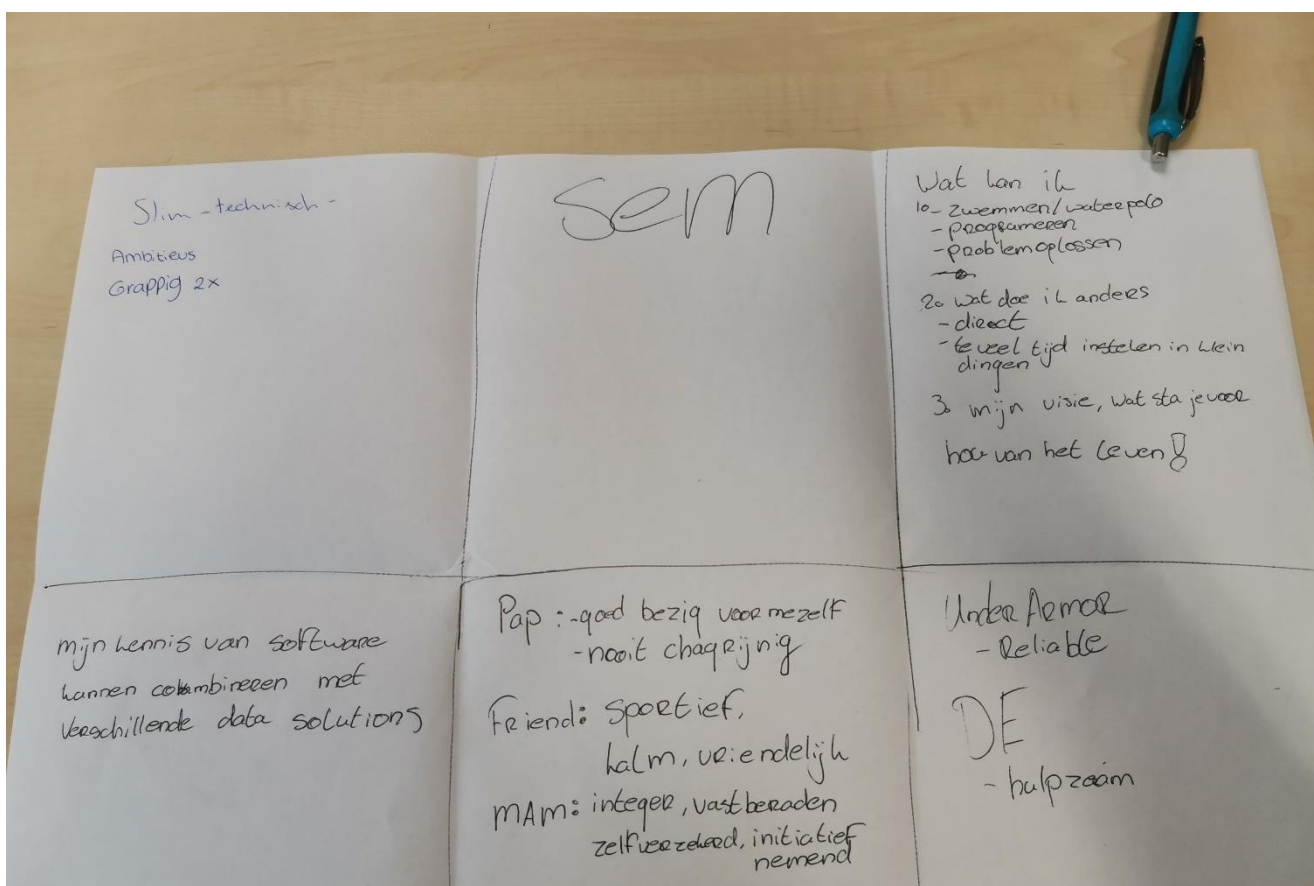 Slim - technisch -
Ambitieus
Grappig 2x
Sem
Wat kan ik
1o- zwemmen/waterpolo
- programeren
- problemoplossen
2o wat doe ik anders
- direct
- te veel tijd insteken in klein
dingen
3o mijn visie, wat sta je voor
hou van het leven!
mijn kennis van software
kunnen combineren met
verschillende data solutions
Pap : - goed bezig voor mezelf
- nooit chagrijnig
Friend: sportief,
kalm, vriendelijk
MAM: integer, vastberaden
zelfverzekerd, initiatief
nemend
Under Armor
- Reliable
DE
- hulpzaam